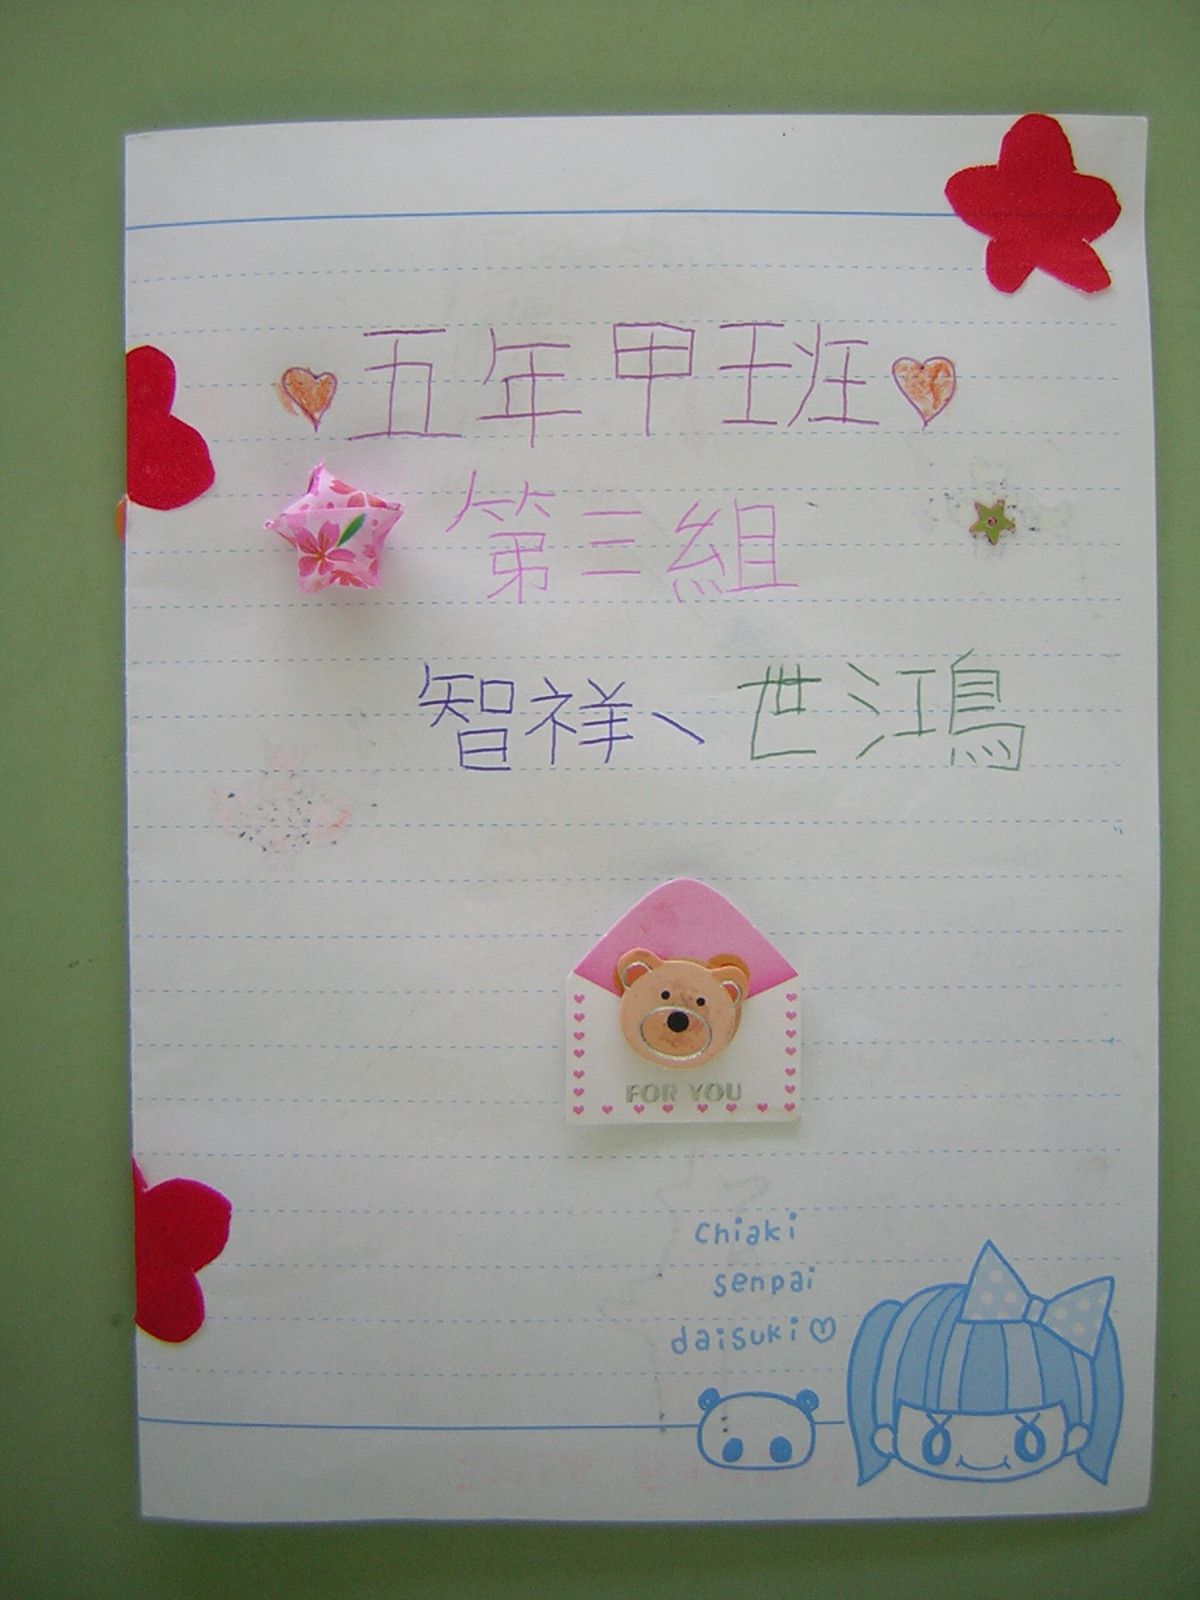 五年甲班
第三組
智祥、世鴻
FOR YOU
chiaki
senpai
daisuki